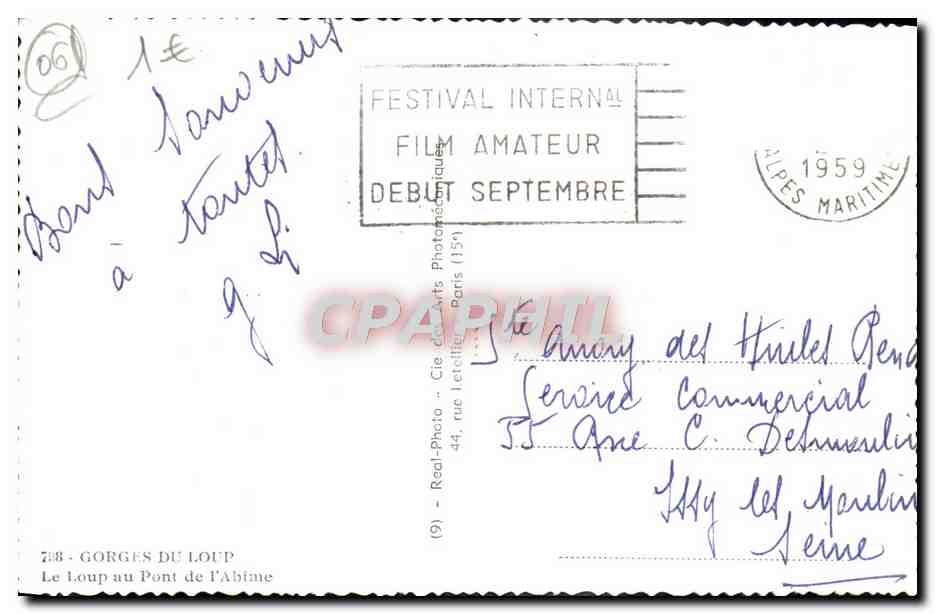 06
1€
Bons Souvenirs
à toutes.
g. L
FESTIVAL INTERNAL
FILM AMATEUR
DEBUT SEPTEMBRE
1959
ALPES MARITIME
CPAPHIL
(9) - Real-Photo - Cie des Arts Photomécaniques
44, rue Letellier - Paris (15e)
Sté des Huiles Rena
Service Commercial
55 Ave C. Desmoulin
Issy les Moulin
Seine
788 - GORGES DU LOUP
Le Loup au Pont de l'Abime